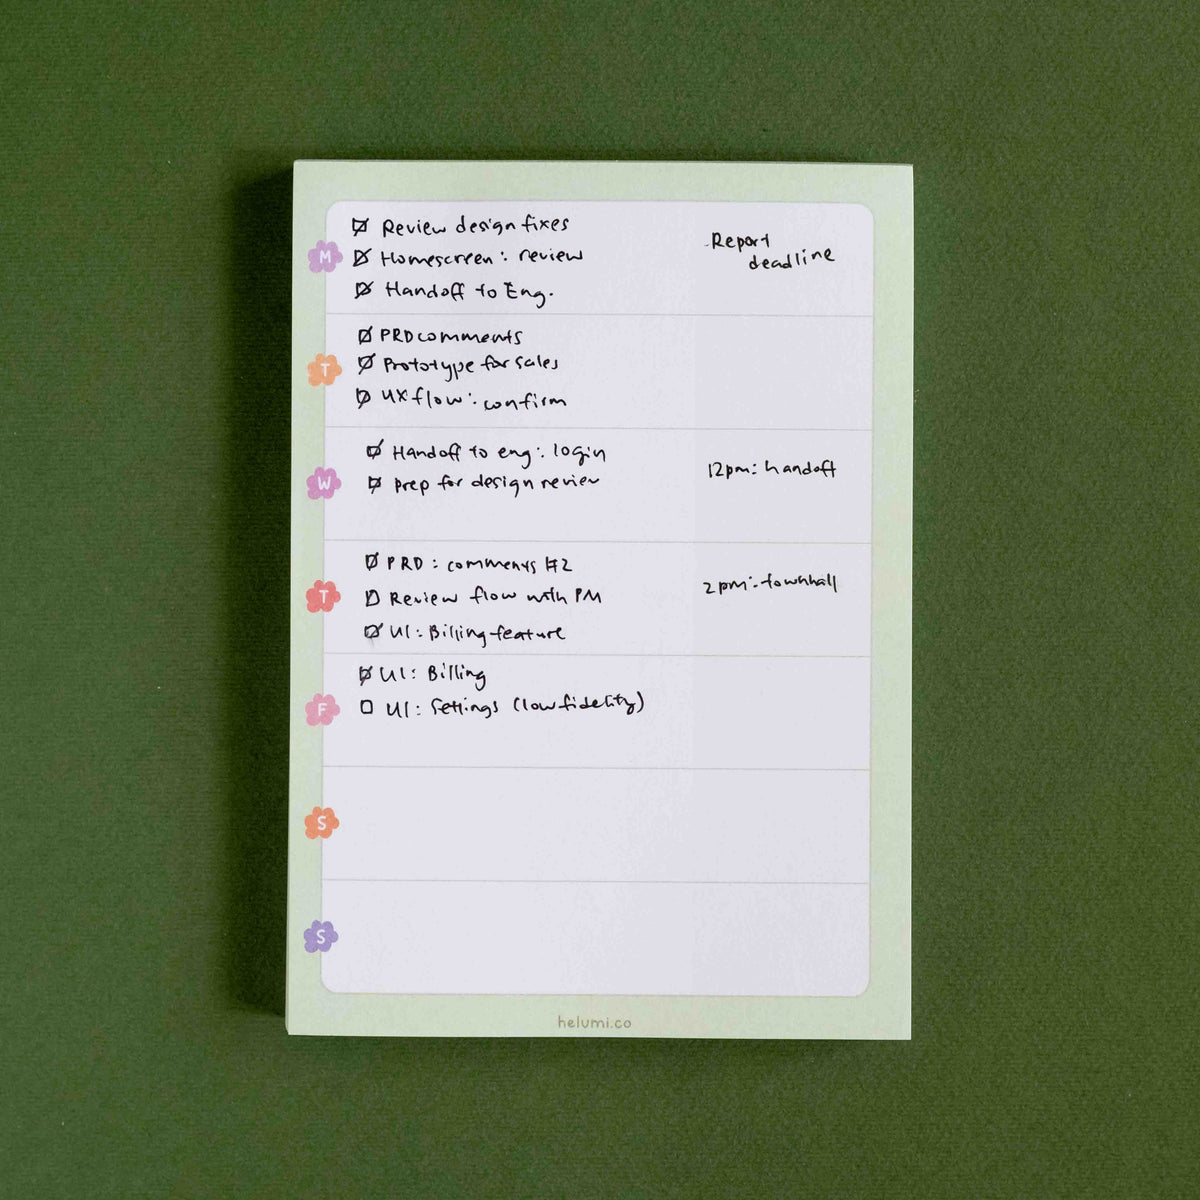 M
Review design fixes
Homescreen: review
Handoff to Eng.
Report
deadline
T
PRD comments
Prototype for sales
UX flow: confirm
W
Handoff to eng: login
Prep for design review
12pm: handoff
T
PRD: comments #2
Review flow with PM
UI: Billing feature
2pm: townhall
F
UI: Billing
UI: Settings (low fidelity)
S
S
helumi.co